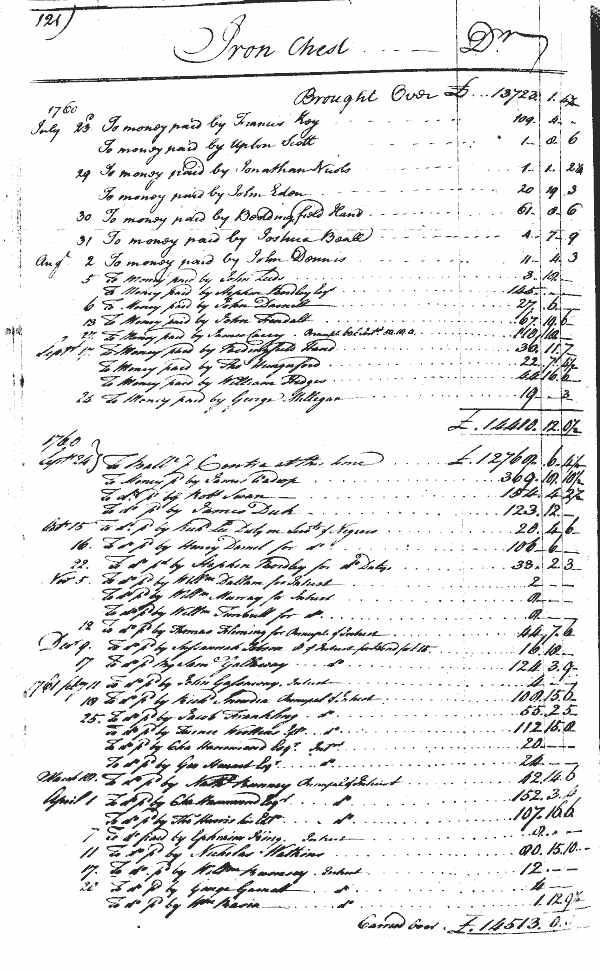 121)
Iron Chest Dr
Brought Over £ 13723. 1.
1760
July 23 To money paid by Francis Key 109. 4 -
To money paid by Upton Scott 1 - 8. 6
29 To money paid by Jonathan Nicols 1 - 1.
To money paid by John Eden 20 19. 3
30 To money paid by Beddingfield Hand 61. 8. 6
31 To money paid by Joshua Beall 4. 7. 9
Augt 2 To money paid by John Dennis 11. 4. 3
5 To Money paid by John Leeds 3. 10.
To Money paid by Stephen
6 To Money paid by John Darnall 27. 6.
13 To Money paid by John 67. 10. 6
To Money paid by James 110. 10.
Septr 17 To Money paid by Beddingfield Hand 36. 11. 7
To Money paid by Thos Hungerford 22. 7.
To Money paid by William Hedges 44. 16. 6
23 To Money paid by George Millegan 19 - 3
£ 14410. 12. 0½
1760
Septr 24 } To Ball. Contra at this time £ 12760. 6.
To Money pd by James 369. 10. 10½
To do pd by Robt Swan 154. 4.
To do pd by James Dick 123. 12 -
Octr 15 To do pd by Richd Lee Duty on of Negroes 20. 4. 6
16. To do pd by Henry Darnal for do 106 - 6 -
22. To do pd by Stephen for do Duty 33. 2 3
Novr 5 To do pd by Willm Dallam for Interest 2 - -
To do pd by Willm Murray for Interest 8 - -
To do pd by Willm Turnbull for do 8 - -
12 To do pd by Thomas Fleming for Principal & Interest 44. 7. 6
Decr 9. To do pd by Susannah
17 To do pd by Saml Galloway do 124. 3. 9
1761 11 To do pd by John Gassaway. Interest 4 - -
19 To do pd by Richd Snowden Principal & Interest 108. 15. 6
25 To do pd by Jacob Franklin do 55. 2. 5
To do pd by Turner Wootton do 112. 15. 8
To do pd by Cha Hammond Esqr Intt 20. - -
To do pd by Geo Steuart Esqr 24. - -
March 10. To do pd by Principal & Interest 42. 14. 6
April 1 To do pd by Cha Hammond Esqr do 152. 3.
To do pd by Tho Harris do 107. 16. 6
7 To do paid by Ephraim King. Interest 8. - -
11 To do pd by Nicholas Watkins 80. 15. 10
17. To do pd by Willm Interest 12 - -
22 To do pd by George do 4 - -
To do pd by Wm do 1. 12.
Carried over £ 14513. 0.